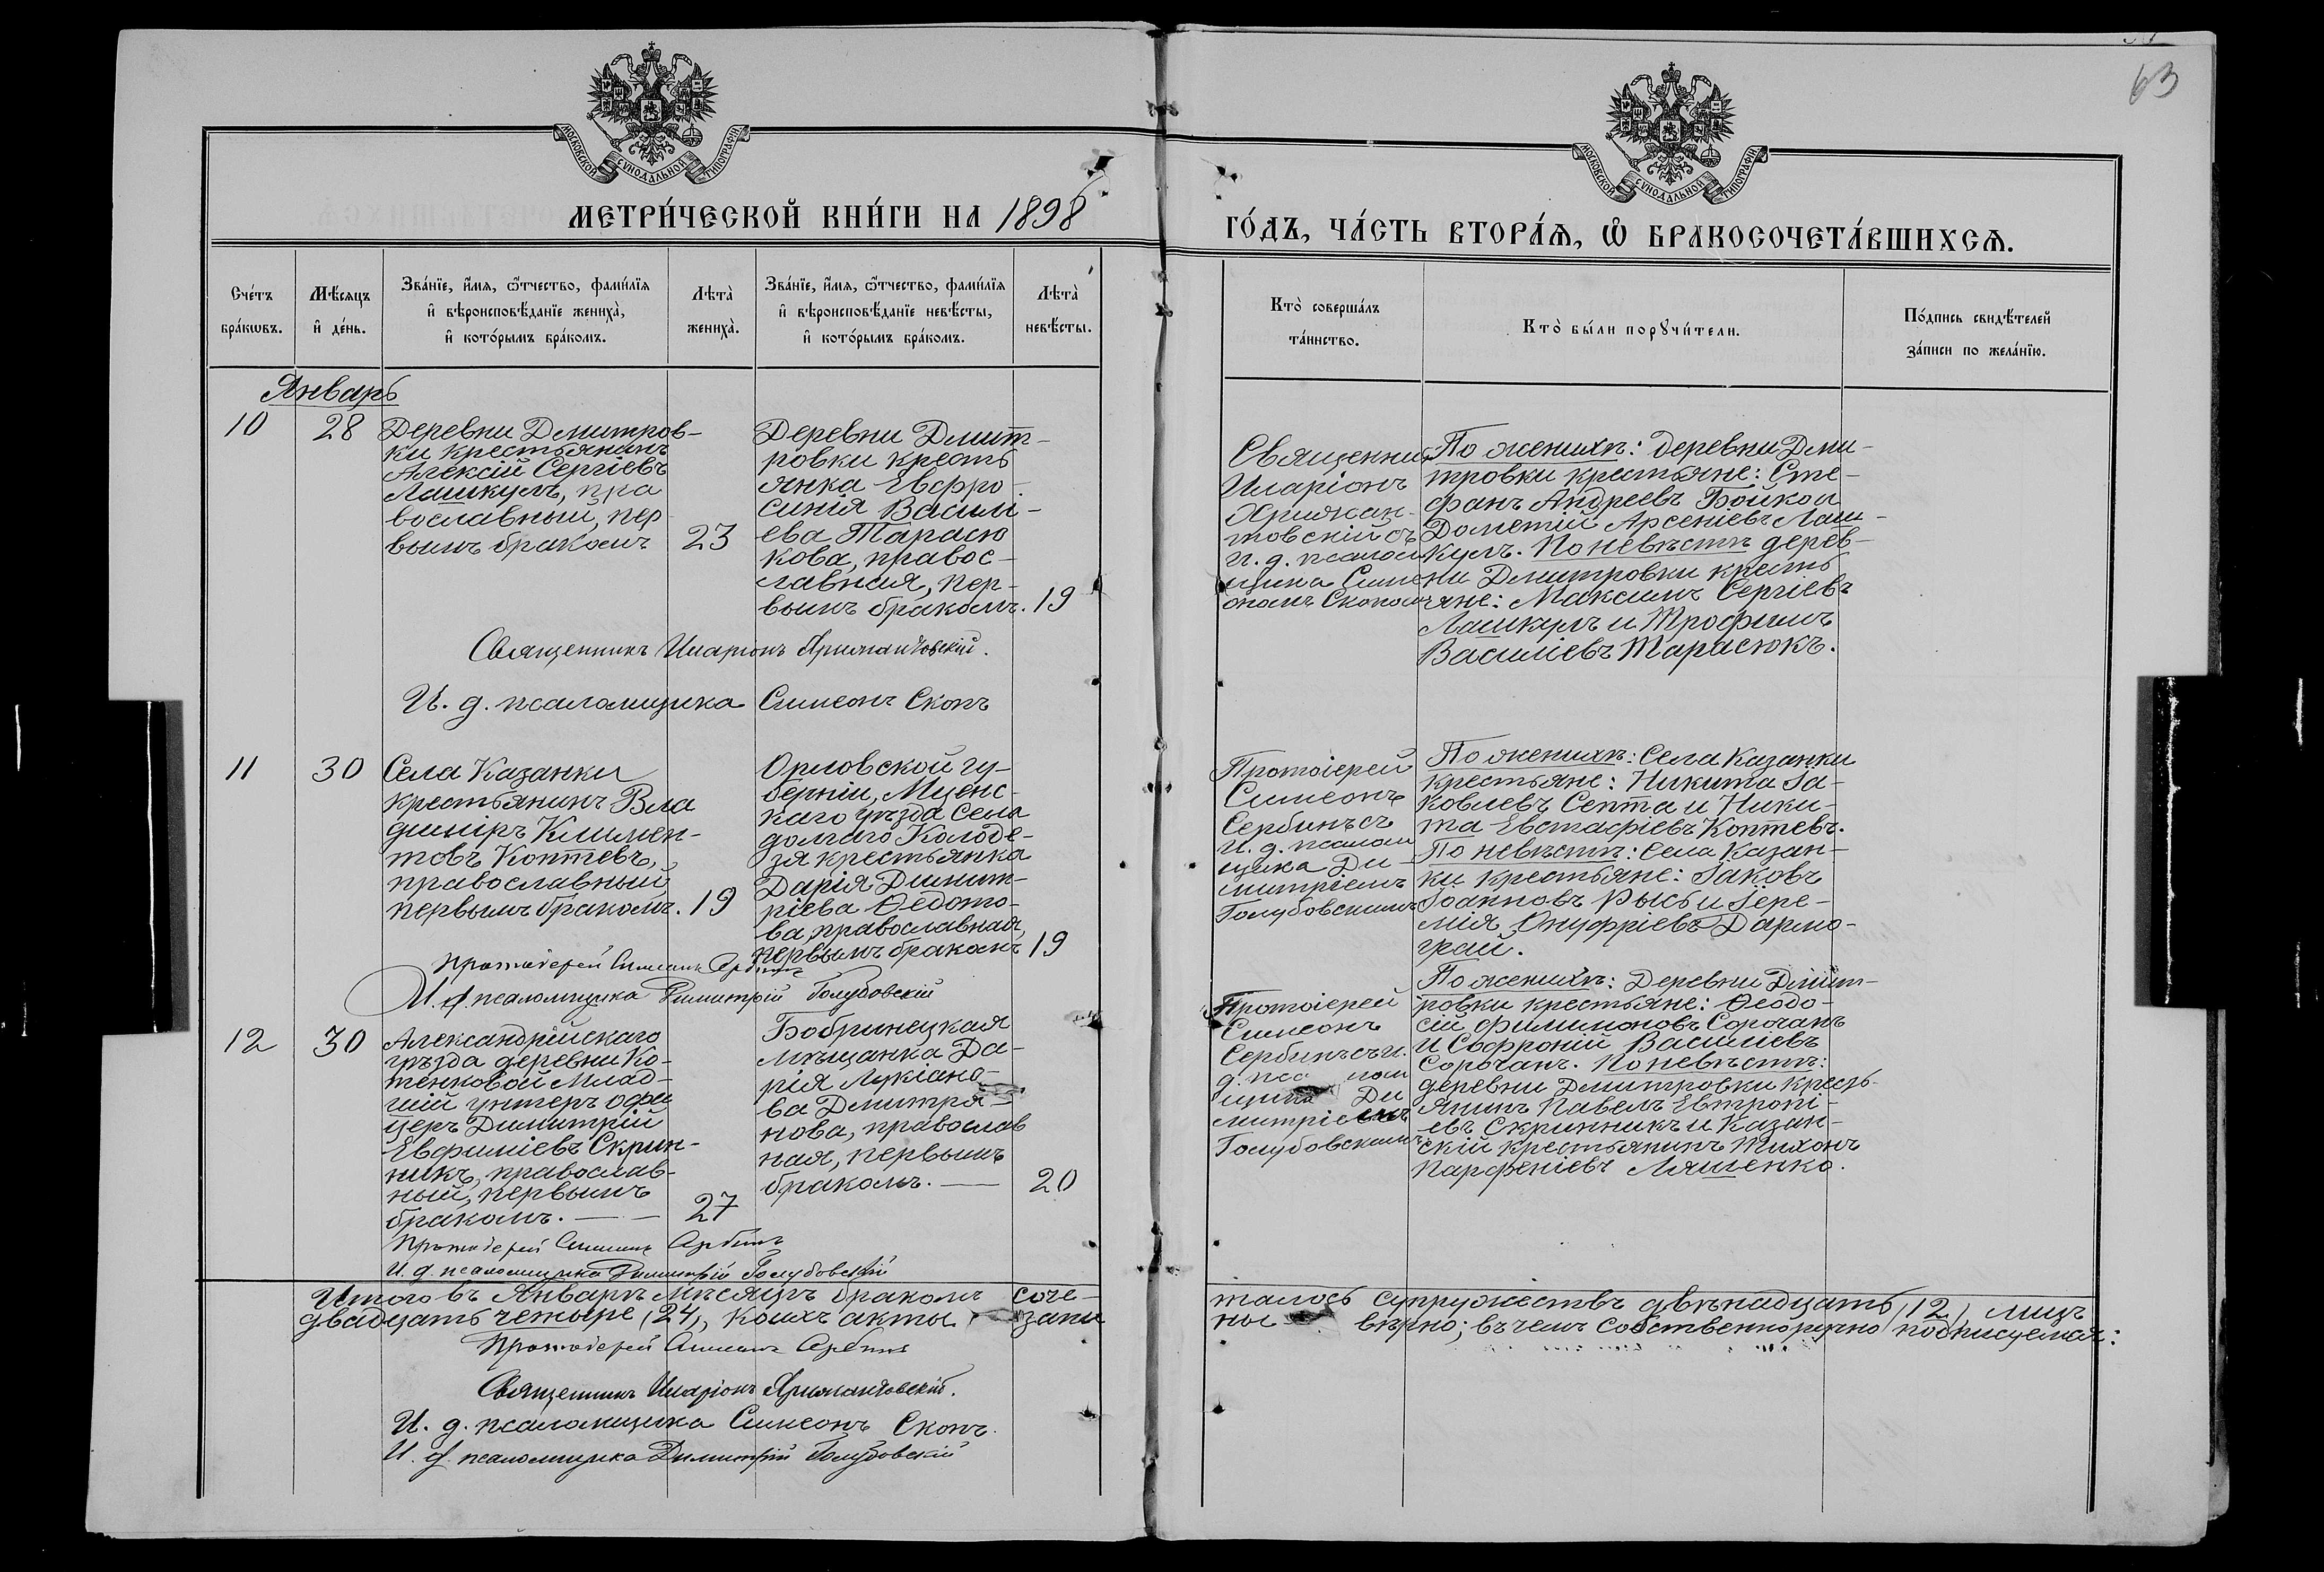 63
МОСКОВСКОЙ СУНОДАЛЬНОЙ ТИПОГРАФІИ
МОСКОВСКОЙ СУНОДАЛЬНОЙ ТИПОГРАФІИ
МЕТРИ́ЧЕСКОЙ КНИ́ГИ НА 1898
ГО́ДЪ, ЧА́СТЬ ВТОРА́Ѧ, Ѡ҆ БРАКОСОЧЕТА́ВШИХСѦ.
Сче́тъ
бра́кѡвъ.
Мѣ́сяцъ
и҆ де́нь.
Зва́нїе, и҆́мя, ѻ҆́тчество, фами́лїя
и҆ вѣроисповѣ́данїе жениха̀,
и҆ кото́рымъ бра́комъ.
Лѣта̀
жениха̀.
Зва́нїе, и҆́мя, ѻ҆́тчество, фами́лїя
и҆ вѣроисповѣ́данїе невѣ́сты,
и҆ кото́рымъ бра́комъ.
Лѣта̀
невѣ́сты.
Кто̀ соверша́лъ
та́инство.
Кто̀ бы́ли порꙋчи́тели.
По́дпись свидѣ́телей
за́писи по жела́нїю.
Январь
10
28
Деревни Дмитров-
ки крестьянинъ
Алексій Сергіевъ
Лашкулъ, пра
вославный, пер
вымъ бракомъ
23
Деревни Дмит-
ровки кресть
янка Евфро-
синія Васили-
ева Тарасю
кова, правос-
лавная, пер-
вымъ бракомъ.
19
Священникъ
Иларіонъ
товскій съ
и. д. псалом
щика Симе
ономъ Скопом
По женихѣ: деревни Дми-
тровки крестьяне: Сте-
фанъ Андреевъ Бойко и
Дометій Арсеніевъ Лаш-
кулъ. По невѣстѣ дерев-
ни Дмитровки кресть
яне: Максимъ Сергіевъ
Лашкулъ и Трофимъ
Василіевъ Тарасюкъ.
Священникъ Иларіонъ
И. д. псаломщика Симеонъ Скопъ
11
30
Села Казанки
крестьянинъ Вла
диміръ Климен-
товъ Коптевъ,
православный
первымъ бракомъ.
19
Орловской гу-
берніи, Мценс-
каго уѣзда села
долгаго Колоде-
зя крестьянка
Дарія Димит-
ріева Ѳедото-
ва, православная,
первымъ бракомъ
19
Протоіерей
Симеонъ
Сербинъ съ
и. д. псалом
щика Ди-
митріемъ
Голубовскимъ
По женихѣ: Села Казанки
крестьяне: Никита Іа-
ковлевъ Септа и Ники-
та Евстафіевъ Коптевъ.
По невѣстѣ: Села Казан-
ки крестьяне: Іаковъ
Іоанновъ Рысь и Іере-
мія Онуфріевъ Дармо-
грай.
Протоіерей Симеонъ Сербинъ
И. д. псаломщика Димитрій Голубовскій
12
30
Александрійскаго
уѣзда деревни Ко-
тенковой Млад-
шій унтеръ офи
церъ Димитрій
Евфиміевъ Скрин-
никъ, православ-
ный, первымъ
бракомъ.
27
Бобринецкая
мѣщанка Да-
рія Лукіано-
ва Дмитрі-
нова, православ
ная, первымъ
бракомъ.
20
Протоіерей
Симеонъ
Сербинъ съ и.
д. псалом
щика Ди
митріемъ
Голубовскимъ
По женихѣ: Деревни Дмит-
ровки крестьяне: Ѳеодо-
сій Филимоновъ Сорочанъ
и Софроній Василіевъ
Сорочанъ. По невѣстѣ:
деревни Дмитровки кресть-
янинъ Павелъ Евтропі-
евъ Скринникъ и Казан-
скій крестьянинъ Тихонъ
Парѳеніевъ Ляшенко.
Протоіерей Симеонъ Сербинъ
И. д. псаломщика Димитрій Голубовскій
Итого въ Январѣ мѣсяцѣ бракомъ соче-
талось супружествъ двѣнадцать (12) лицъ
двадцать четыре (24), коихъ акты запи
ны вѣрно; въ чемъ собственноручно подписуемся:
Протоіерей Симеонъ Сербинъ
Священникъ Иларіонъ
И. д. псаломщика Симеонъ Скопъ.
И. д. псаломщика Димитрій Голубовскій